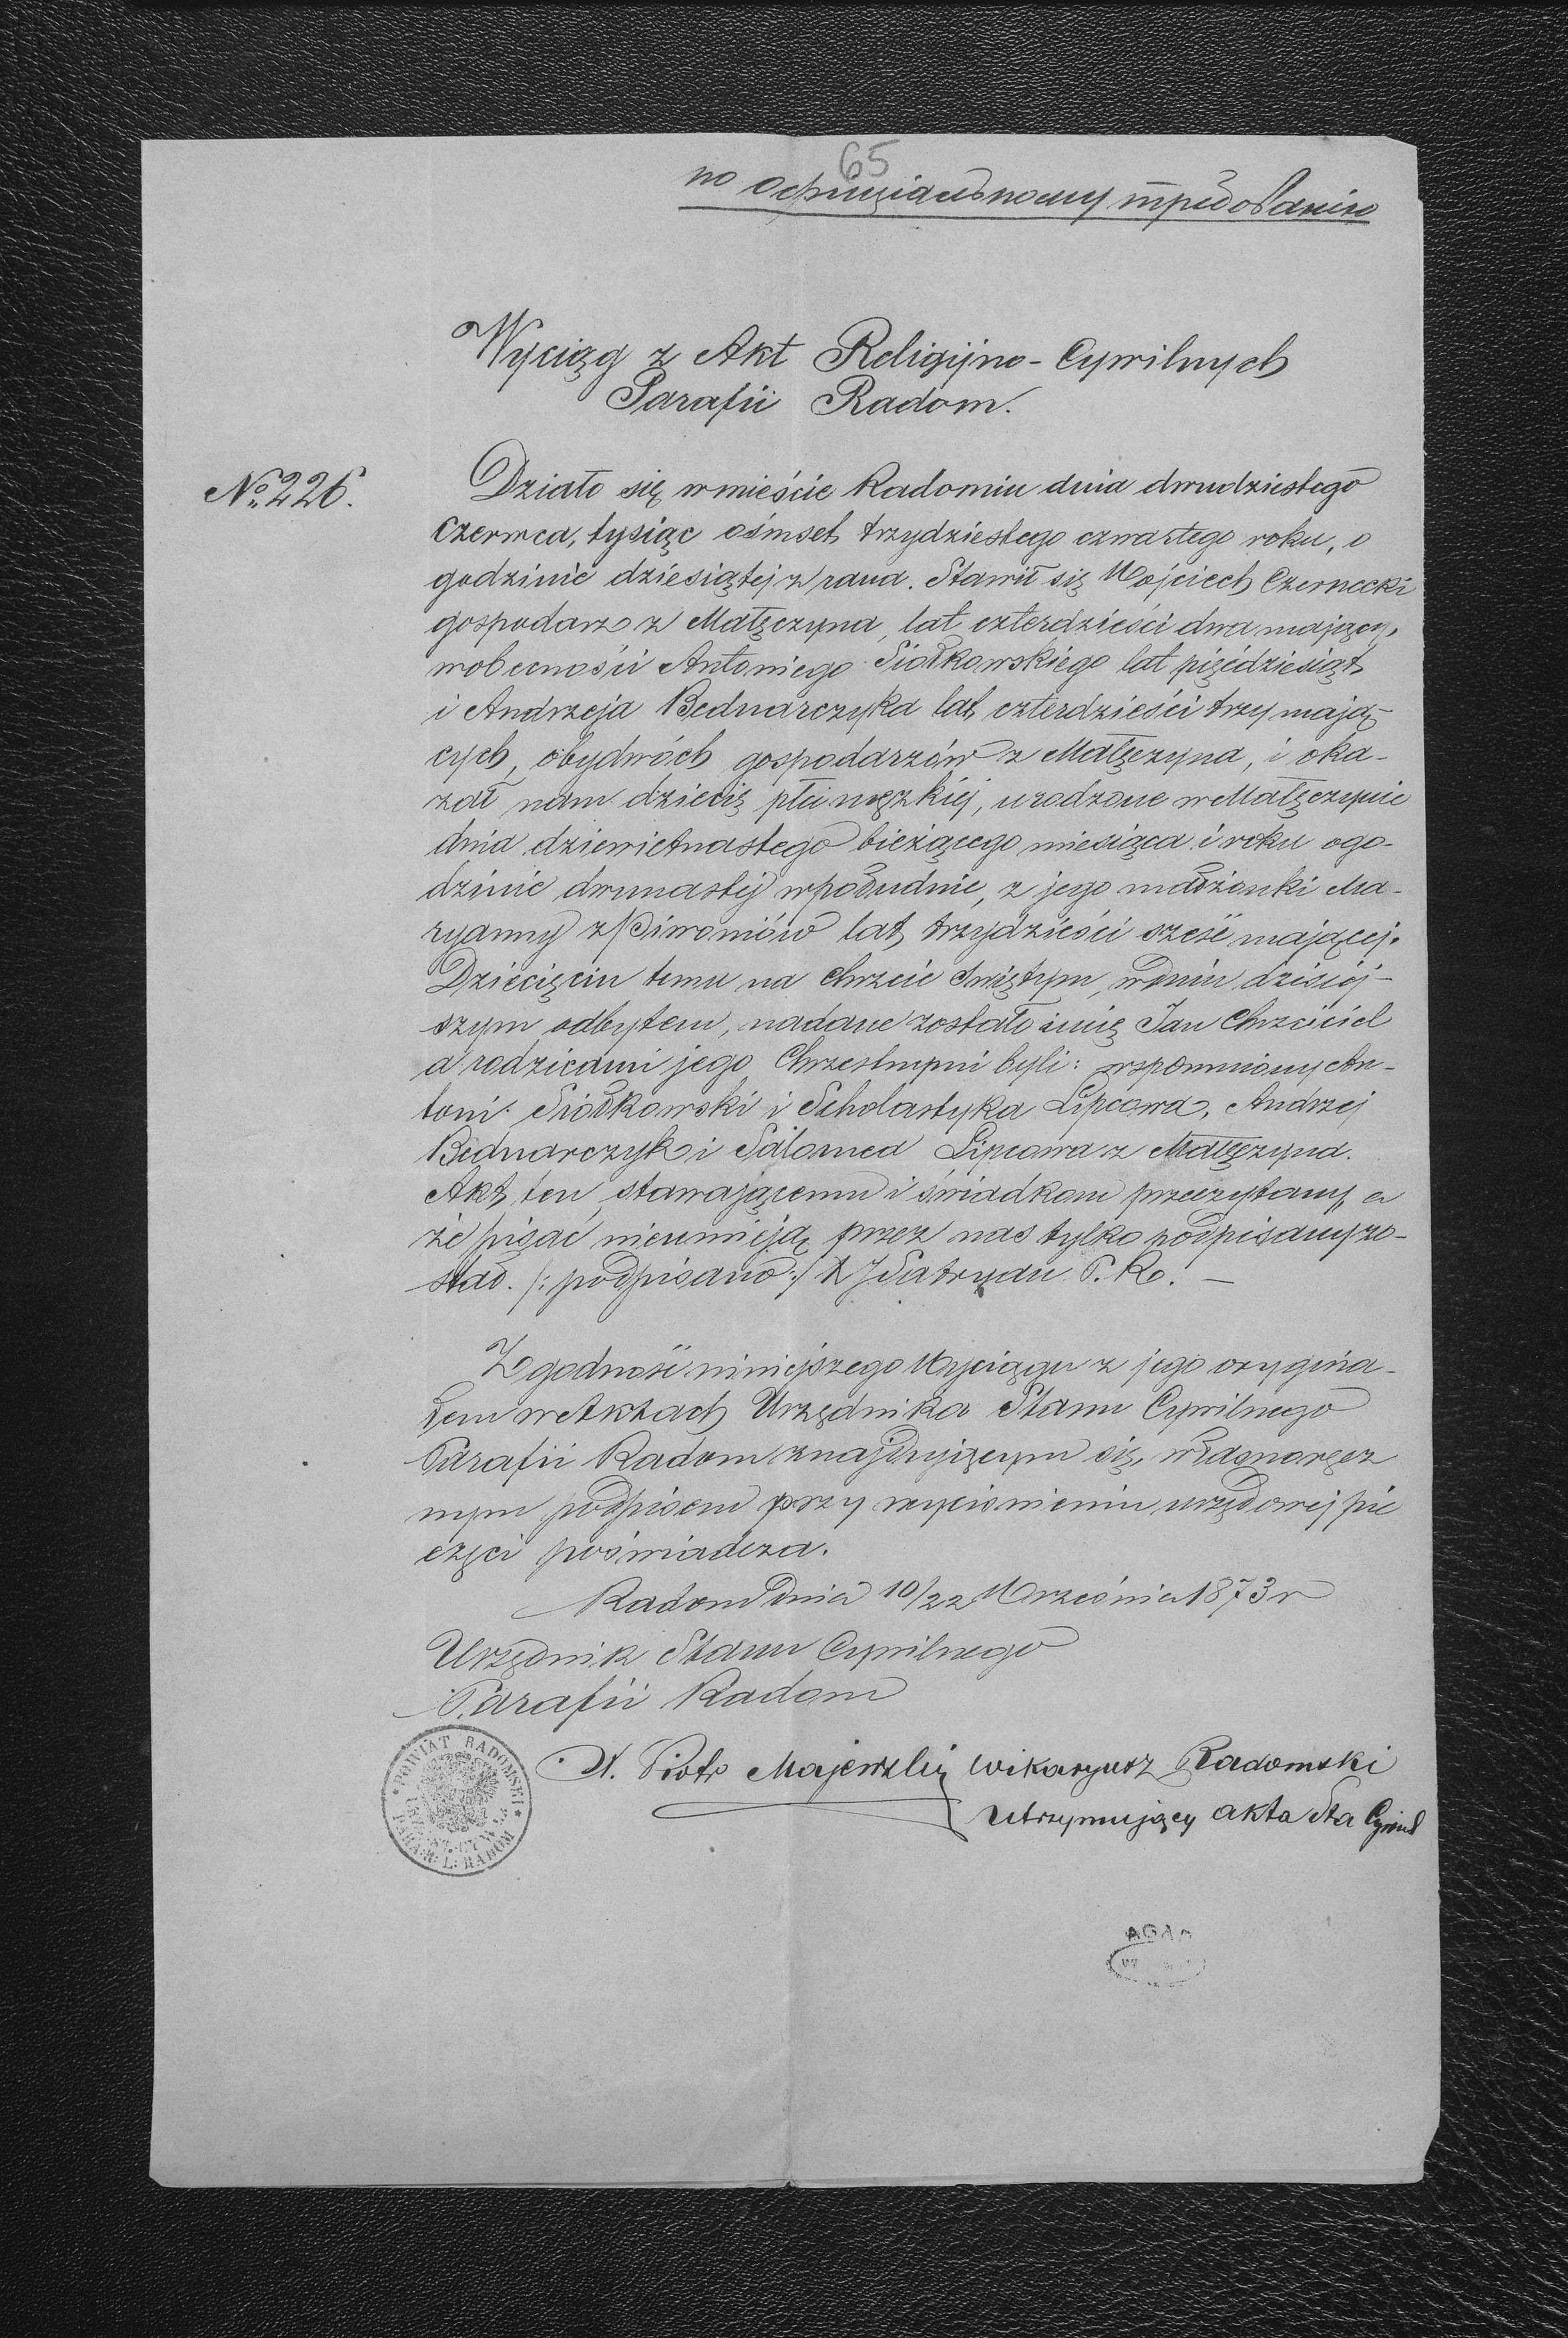 65
по официальному требованію
Wyciąg z Akt Religijno-Cywilnych
Parafii Radom.
№ 226.
Działo się w mieście Radomiu dnia dwudziestego
Czerwca, tysiąc ośmset trzydziestego czwartego roku, o
godzinie dziesiątej z rana. Stawił się Wojciech Czernecki
gospodarz z Małęczyna, lat czterdzieści dwa mający,
w obecności Antoniego Siołkowskiego lat pięćdziesiąt
i Andrzeja Bednarczyka lat czterdzieści trzy mają-
cych, obydwóch gospodarzów z Małęczyna, i oka-
zał nam dziecię płci męzkiej, urodzone w Małęczynie
dnia dziewietnastego bieżącego miesiąca i roku o go-
dzinie dwunastej w południe, z jego małżonki Ma-
ryanny z Piwoniów lat trzydzieści sześć mającej.
Dziecięciu temu na Chrzcie Świętym, w dniu dzisiej-
szym odbytem, nadane zostało imię Jan Chrzciciel
a rodzicami jego Chrzestnymi byli: wspomniony An-
toni Siołkowski i Scholastyka Lipcowa, Andrzej
Bednarczyk i Salomea Lipcowa z Małęczyna.
Akt ten stawającemu i świadkom przeczytany, a
że pisać nieumieją przez nas tylko podpisany zo-
stał. /: podpisano :/ X J P. R. —
Zgodność niniejszego Wyciągu z jego orygina-
łem w Aktach Urzędnika Stanu Cywilnego
Parafii Radom znajdującym się, własnoręcz
nym podpisem przy wyciśnieniu urzędowej pie
częci poświadcza.
Radom dnia 10/22 Września 1873 r
Urzędnik Stanu Cywilnego
Parafii Radom
X. Piotr Majewski Wikaryusz Radomski
utrzymujący akta Sta Cywil
POWIAT RADOMSKI
PARA: R: L: RADOM
AGAD